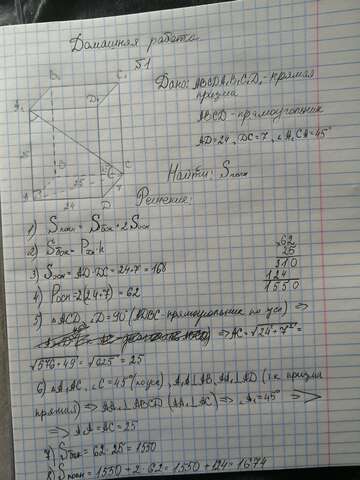 Домашняя работа
Б1
Дано: ABCDA₁B₁C₁D₁ - прямая
призма
ABCD - прямоугольник
AD=24, DC=7, ∠A₁CA=45°
Найти: Sполн
Решение:
B₁ C₁
A₁ D₁
25
B C
A 25 45° 7
24 D
1) Sполн = Sбок + 2Sосн
2) Sбок = Pосн·h
3) Sосн = AD·DC = 24·7 = 168
4) Pосн = 2(24+7) = 62
62
25
310
124
1550
5) △ACD, ∠D=90° (ABCD - прямоугольник по усл) ⇒
⇒ AC = √24²+7² =
√576+49 = √625 = 25
6) △A₁AC, ∠C=45° (по усл), A₁A⊥AB, AA₁⊥AD (т.к призма
прямая) ⇒ AA₁⊥ABCD (AA₁⊥AC) ⇒ ∠A₁=45° ⇒
⇒ A₁A = AC = 25
7) Sбок = 62·25 = 1550
8) Sполн = 1550 + 2·62 = 1550 + 124 = 1674